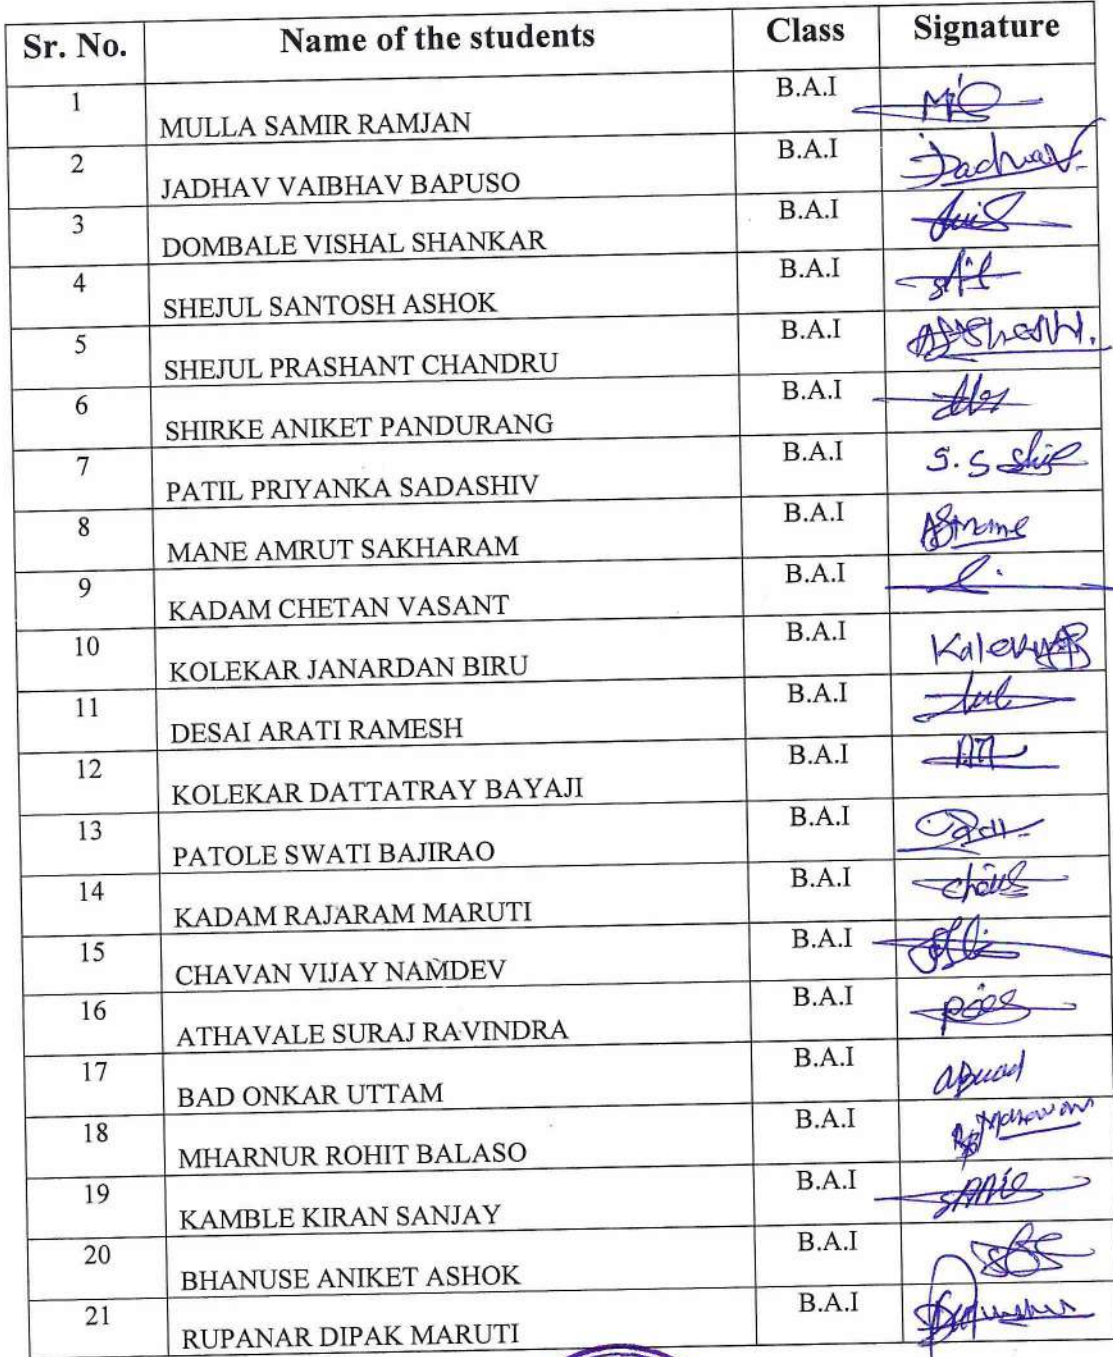 Sr. No. Name of the students Class Signature
1 MULLA SAMIR RAMJAN B.A.I
2 JADHAV VAIBHAV BAPUSO B.A.I Jadhav
3 DOMBALE VISHAL SHANKAR B.A.I
4 SHEJUL SANTOSH ASHOK B.A.I
5 SHEJUL PRASHANT CHANDRU B.A.I
6 SHIRKE ANIKET PANDURANG B.A.I
7 PATIL PRIYANKA SADASHIV B.A.I S.S
8 MANE AMRUT SAKHARAM B.A.I ASmane
9 KADAM CHETAN VASANT B.A.I
10 KOLEKAR JANARDAN BIRU B.A.I
11 DESAI ARATI RAMESH B.A.I
12 KOLEKAR DATTATRAY BAYAJI B.A.I
13 PATOLE SWATI BAJIRAO B.A.I
14 KADAM RAJARAM MARUTI B.A.I
15 CHAVAN VIJAY NAMDEV B.A.I
16 ATHAVALE SURAJ RAVINDRA B.A.I
17 BAD ONKAR UTTAM B.A.I
18 MHARNUR ROHIT BALASO B.A.I
19 KAMBLE KIRAN SANJAY B.A.I
20 BHANUSE ANIKET ASHOK B.A.I
21 RUPANAR DIPAK MARUTI B.A.I